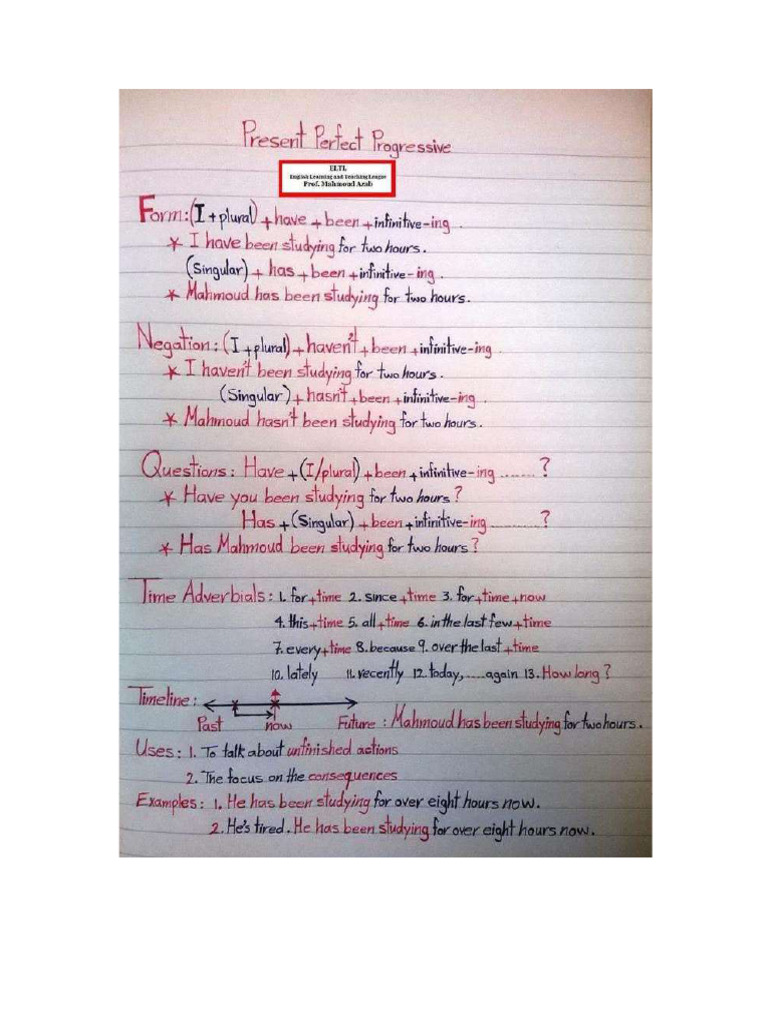 Present Perfect Progressive
ELTL
English Learning and Teaching League
Prof. Mahmoud Azab
Form:(I + plural) + have + been + infinitive-ing.
* I have been studying for two hours.
(Singular) + has + been + infinitive-ing.
* Mahmoud has been studying for two hours.
Negation: (I + plural) + haven't + been + infinitive-ing
* I haven't been studying for two hours.
(Singular) + hasn't + been + infinitive-ing.
* Mahmoud hasn't been studying for two hours.
Questions: Have + (I/plural) + been + infinitive-ing ........?
* Have you been studying for two hours?
Has + (Singular) + been + infinitive-ing ............?
* Has Mahmoud been studying for two hours?
Time Adverbials: 1. for + time 2. since + time 3. for + time + now
4. this + time 5. all + time 6. in the last few + time
7. every + time 8. because 9. over the last + time
10. lately 11. recently 12. today, .....again 13. How long?
Timeline:
Past now Future : Mahmoud has been studying for two hours.
Uses: 1. To talk about unfinished actions
2. The focus on the consequences
Examples: 1. He has been studying for over eight hours now.
2. He's tired. He has been studying for over eight hours now.